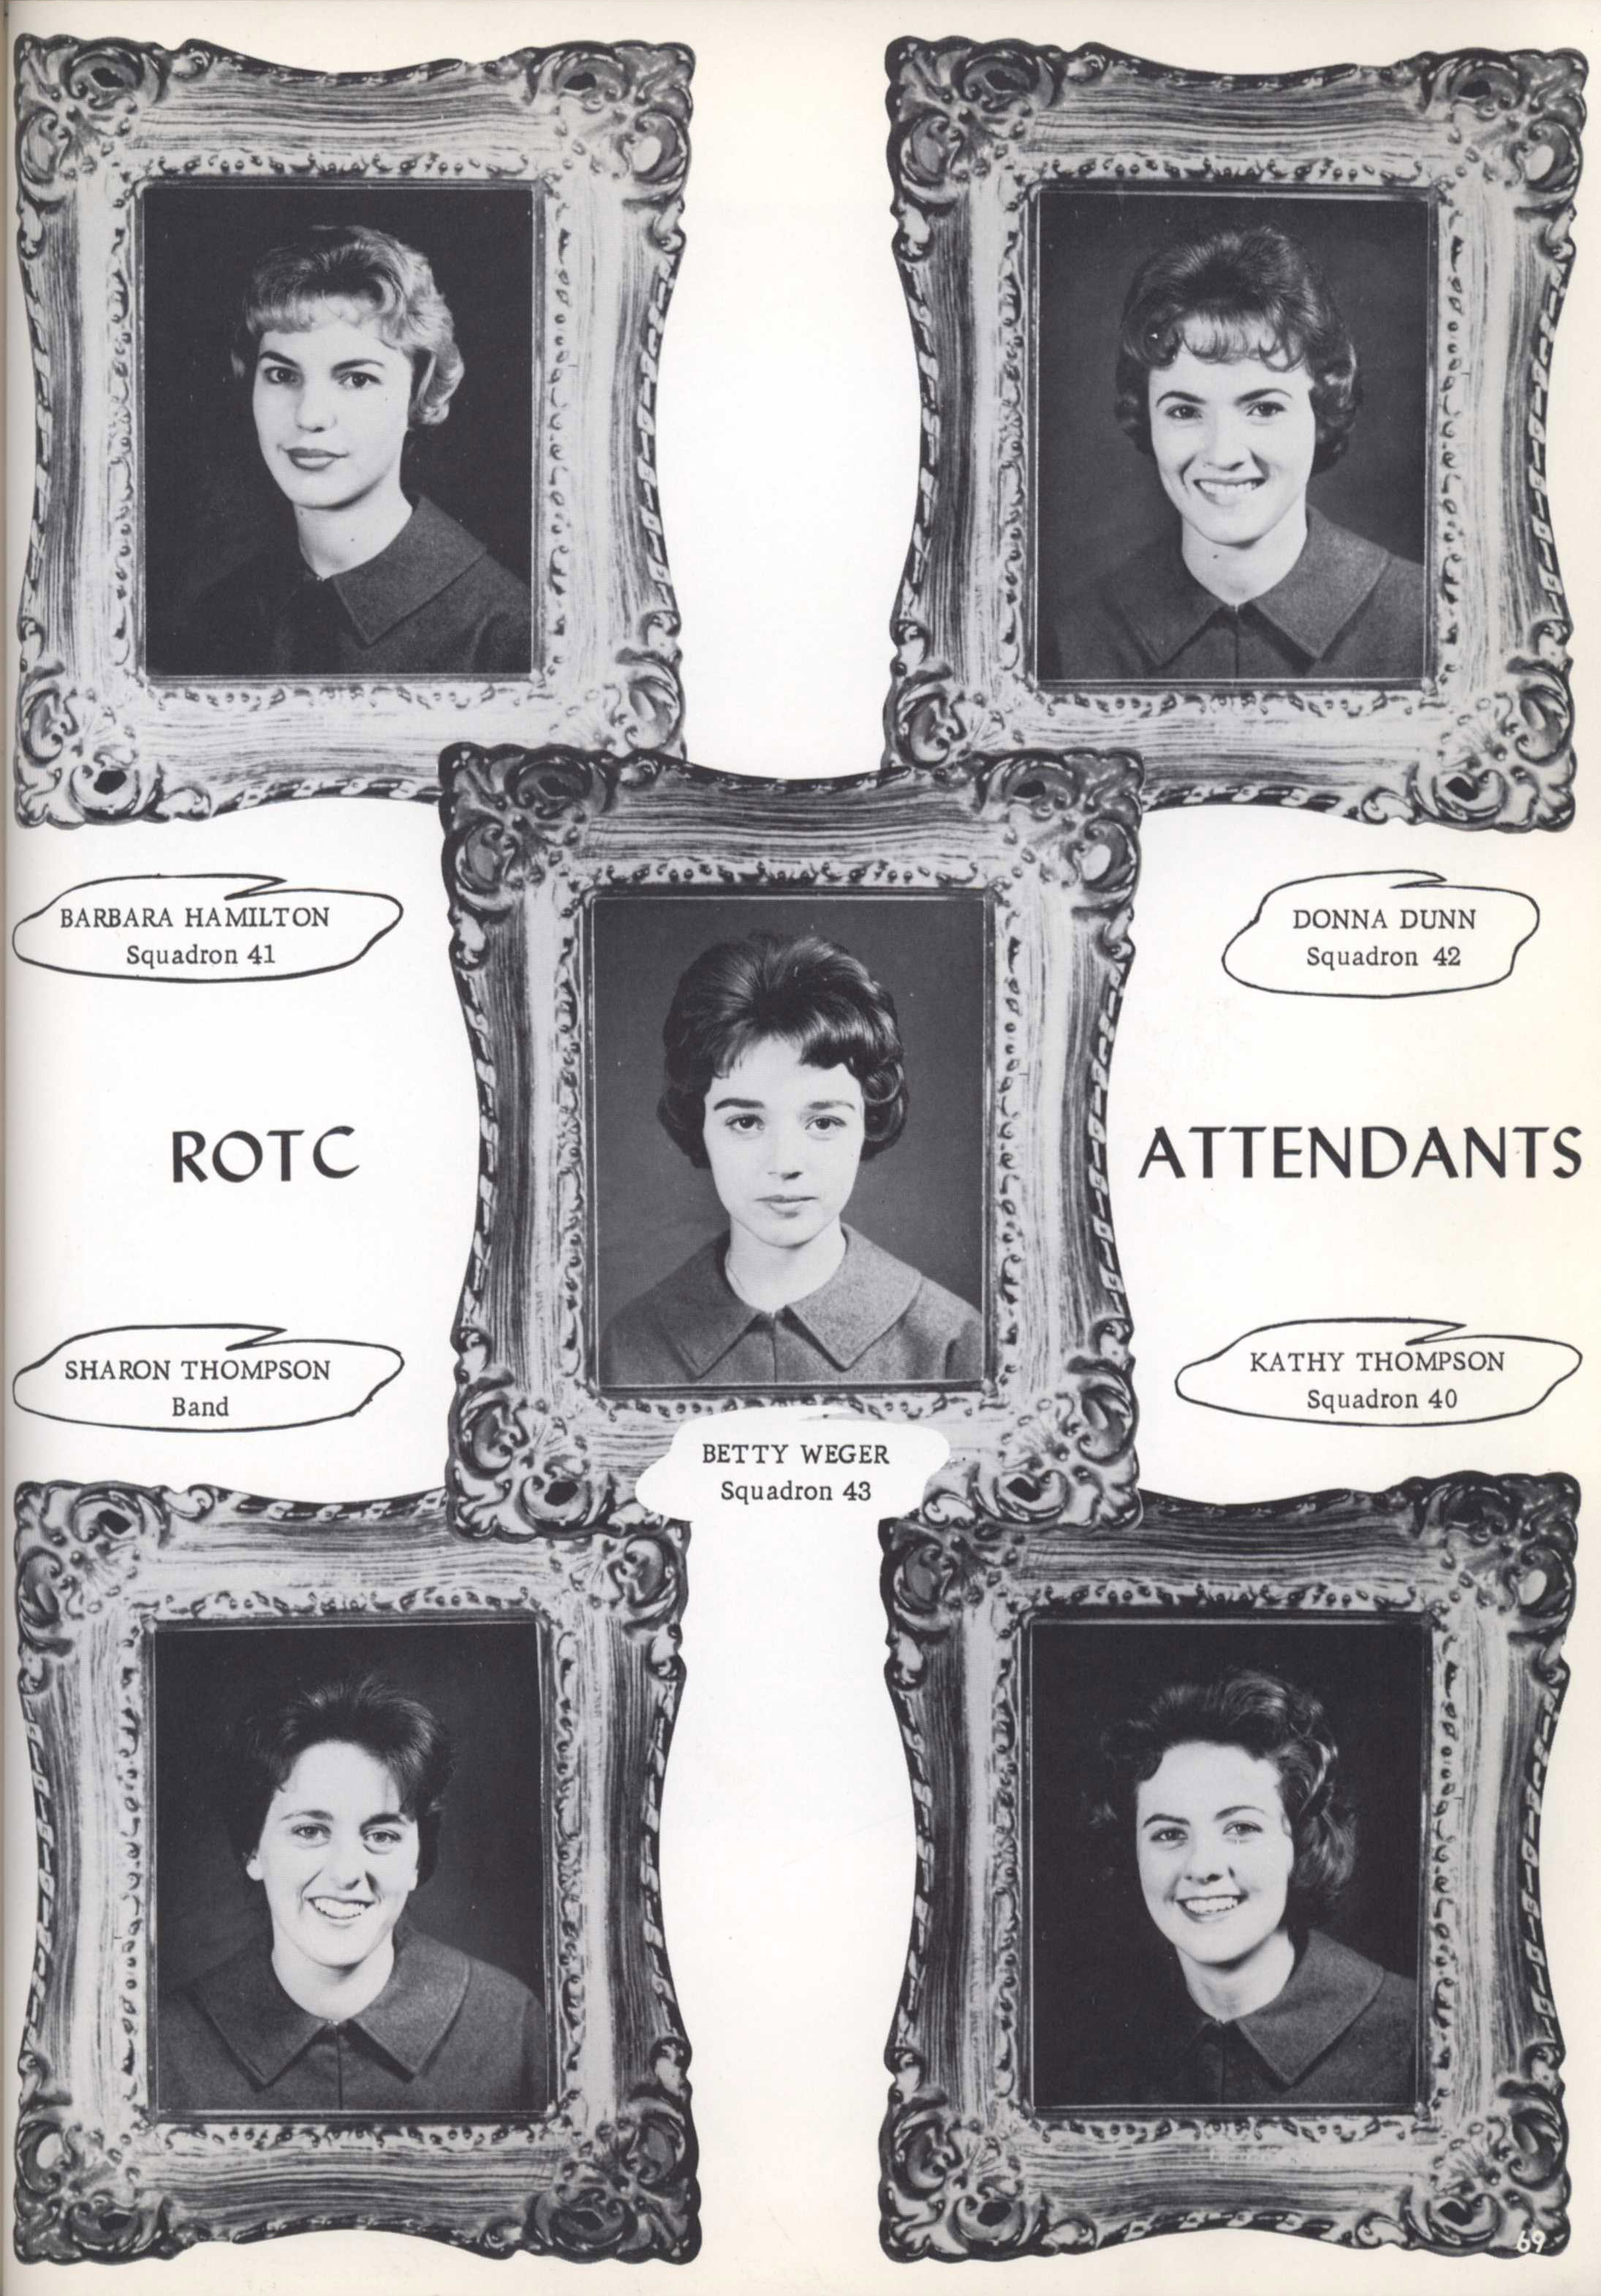 BARBARA HAMILTON
Squadron 41
DONNA DUNN
Squadron 42
ROTC ATTENDANTS
SHARON THOMPSON
Band
KATHY THOMPSON
Squadron 40
BETTY WEGER
Squadron 43
69